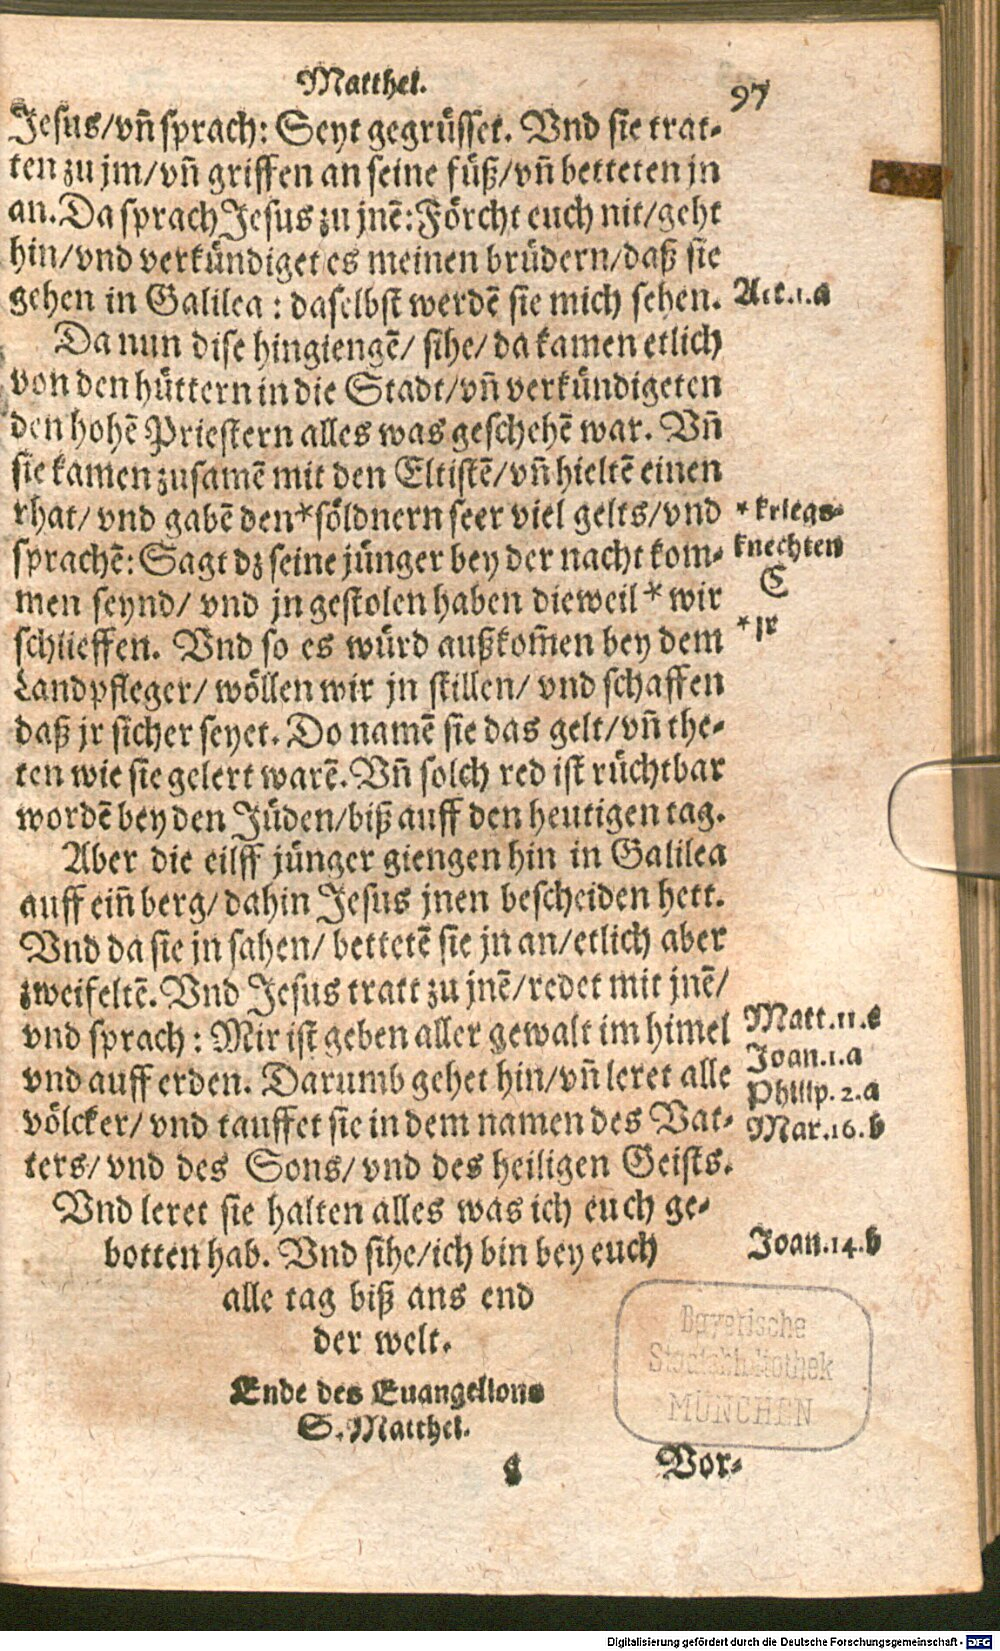 Matthei.
97
Jesus/vñ sprach: Seyt gegrüsset. Vnd sie trat⸗
ten zu jm/vñ griffen an seine füß/vñ betteten jn
an. Da sprach Jesus zu jnē: Förcht euch nit/geht
hin/vnd verkündiget es meinen brüdern/daß sie
gehen in Galilea: daselbst werdē sie mich sehen.
Act.1.a
Da nun dise hingiengē/ sihe/ da kamen etlich
von den hüttern in die Stadt/vñ verkündigeten
den hohē Priestern alles was geschehē war. Vñ
sie kamen zusamē mit den Eltistē/vñ hieltē einen
rhat/ vnd gabē den*söldnern seer viel gelts/vnd
* kriegs⸗
sprachē: Sagt dz seine jünger bey der nacht kom⸗
knechten
C
men seynd/ vnd jn gestolen haben dieweil * wir
* jr
schlieffen. Vnd so es würd außkom̃en bey dem
Landpfleger/ wöllen wir jn stillen/ vnd schaffen
daß jr sicher seyet. Do namē sie das gelt/vñ the⸗
ten wie sie gelert warē. Vñ solch red ist rüchtbar
wordē bey den Jüden/biß auff den heutigen tag.
Aber die eilff jünger giengen hin in Galilea
auff eiñ berg/ dahin Jesus jnen bescheiden hett.
Vnd da sie jn sahen/ bettetē sie jn an/etlich aber
zweifeltē. Vnd Jesus tratt zu jnē/redet mit jnē/
vnd sprach: Mir ist geben aller gewalt im himel
Matt.11.e
vnd auff erden. Darumb gehet hin/vñ leret alle
Joan.1.a
Philip.2.a
völcker/ vnd tauffet sie in dem namen des Vat⸗
Mar.16.b
ters/ vnd des Sons/ vnd des heiligen Geists.
Vnd leret sie halten alles was ich euch ge⸗
botten hab. Vnd sihe/ich bin bey euch
Joan.14.b
alle tag biß ans end
der welt.
Ende des Euangelions
S. Matthei.
Bayerische
Staatsbibliothek
MÜNCHEN
Vor⸗
Digitalisierung gefördert durch die Deutsche Forschungsgemeinschaft - DFG